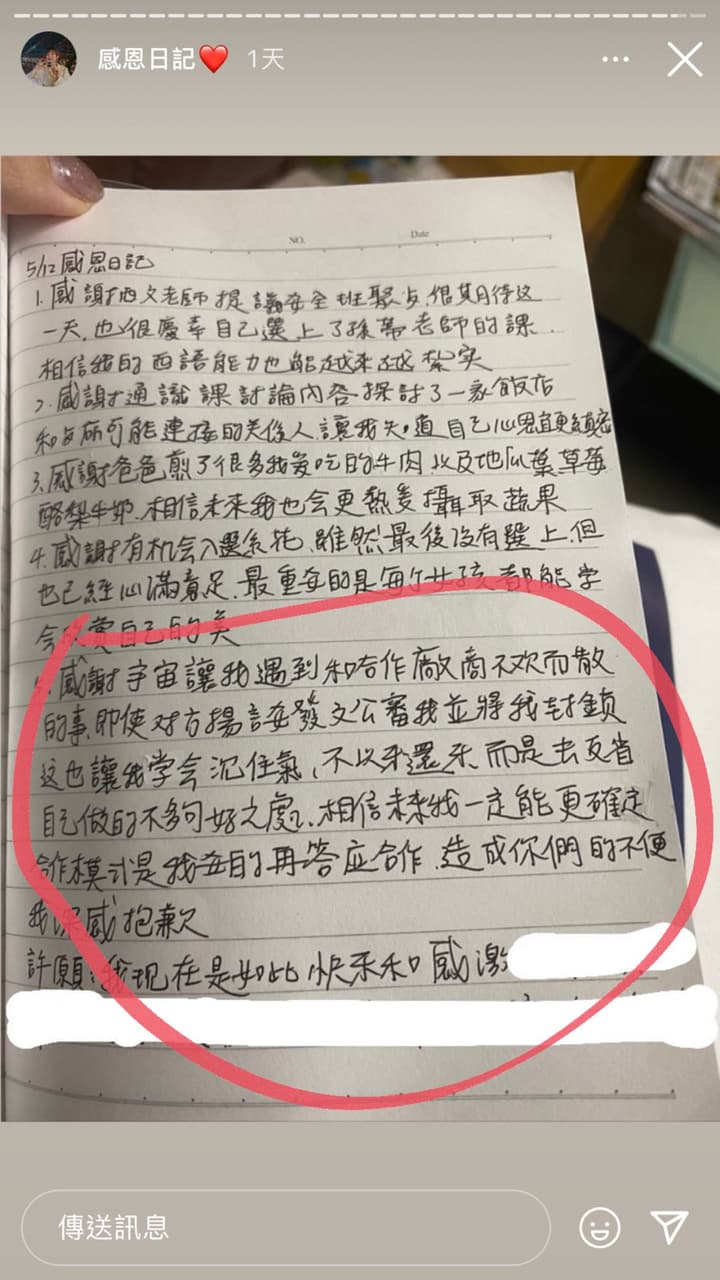 感恩日記❤️ 1天
NO. Date
5/12 感恩日記
1. 感謝西文老師提議要全班聚, 很期待这
一天, 也很慶幸自己選上了孫老師的課.
相信我的西語能力也能越來越紮实
2. 感謝通識課討論內容探討了一家飯店
和所可能連接的关係人, 讓我知道自己心思宜更縝密
3. 感謝爸爸煎了很多我爱吃的牛肉, 以及地瓜葉草莓
酪梨牛奶. 相信未來我也会更熱爱攝取蔬果
4. 感謝有机会入選系花. 雖然最後没有選上, 但
也已經心滿意足. 最重要的是每个女孩都能学
会欣賞自己的美
感謝宇宙讓我遇到和合作廠商不欢而散
的事, 即使对方揚言要發文公審我並將我封鎖
这也讓我学会沉住氣, 不以牙還牙, 而是去反省
自己做的不多句好之處, 相信未來我一定能更確定
合作模式是我要的再答应合作. 造成你們的不便
我深感抱歉
許願: 我现在是如此快乐和感激
傳送訊息